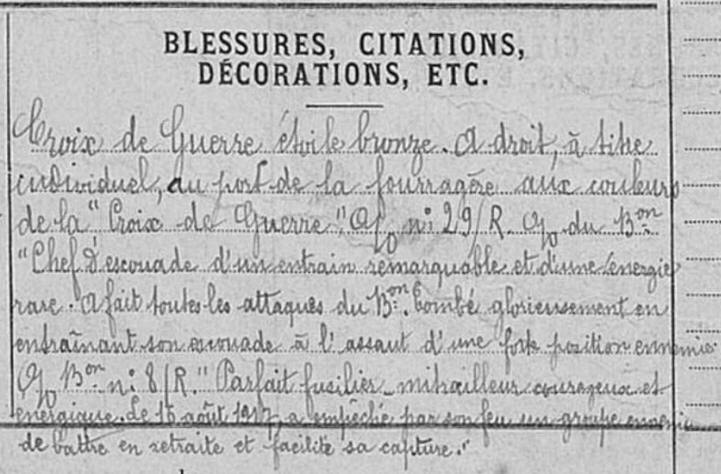 BLESSURES, CITATIONS,
DÉCORATIONS, ETC.
Croix de Guerre étoile bronze. A droit, à titre
individuel, au port de la fourragère aux couleurs
de la "Croix de Guerre". O/ n° 29/R. O/ du Bon
"Chef d'escouade d'un entrain remarquable et d'une énergie
rare. A fait toutes les attaques du Bon. Tombé glorieusement en
entraînant son escouade à l'assaut d'une forte position ennemie.
O/ Bon n° 8/R. "Parfait fusilier-mitrailleur courageux et
énergique. Le 16 août 1917, a empêché par son feu un groupe ennemi
de battre en retraite et facilité sa capture."